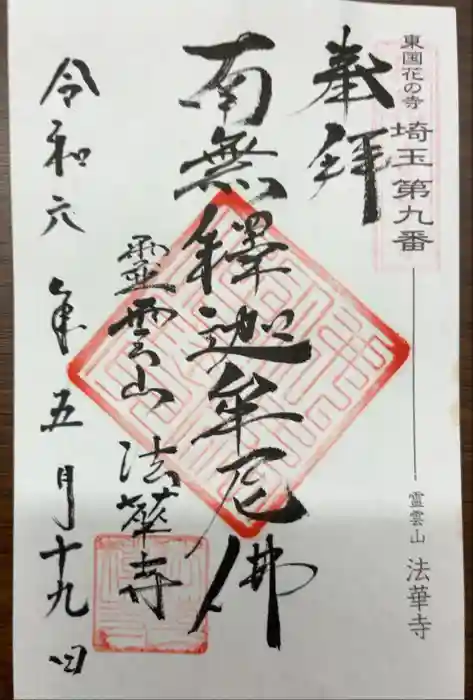 東国花の寺 埼玉第九番
霊雲山 法華寺
奉拜
南無釋迦牟尼佛
靈雲山 法華寺
令和六年五月十九日